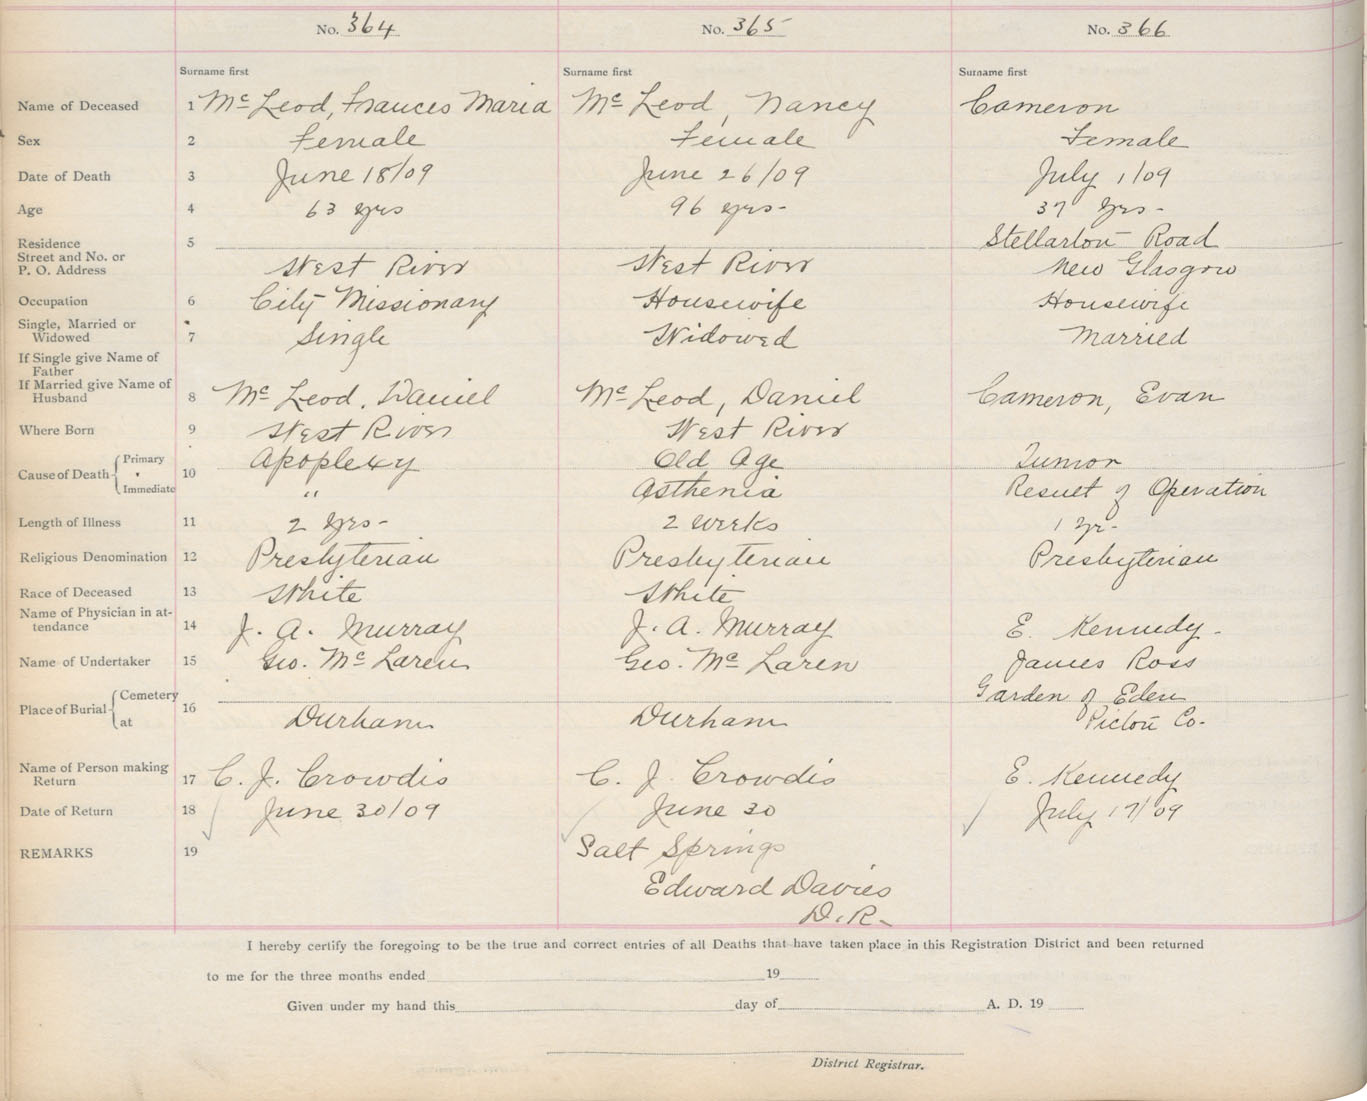 No. 364 No. 365 No. 366
Surname first Surname first Surname first
Name of Deceased 1 McLeod, Frances Maria McLeod, Nancy Cameron
Sex 2 Female Female Female
Date of Death 3 June 18/09 June 26/09 July 1/09
Age 4 63 yrs 96 yrs- 37 yrs-
Residence 5 Stellarton Road
Street and No. or
P. O. Address West River West River New Glasgow
Occupation 6 City Missionary Housewife Housewife
Single, Married or
Widowed 7 Single Widowed Married
If Single give Name of
Father
If Married give Name of
Husband 8 McLeod, Daniel McLeod, Daniel Cameron, Evan
Where Born 9 West River West River
Cause of Death Primary 10 Apoplexy Old Age Tumor
Immediate " Asthenia Result of Operation
Length of Illness 11 2 yrs- 2 weeks 1 yr-
Religious Denomination 12 Presbyterian Presbyterian Presbyterian
Race of Deceased 13 White White
Name of Physician in at-
tendance 14 J. A. Murray J. A. Murray E. Kennedy-
Name of Undertaker 15 Geo. McLaren Geo. McLaren James Ross
Place of Burial Cemetery 16 Garden of Eden
at Durham Durham Pictou Co-
Name of Person making
Return 17 C. J. Crowdis C. J. Crowdis E. Kennedy
Date of Return 18 June 30/09 June 30 July 17/09
REMARKS 19 Salt Springs
Edward Davies
D. R-
I hereby certify the foregoing to be the true and correct entries of all Deaths that have taken place in this Registration District and been returned
to me for the three months ended 19
Given under my hand this day of A. D. 19
District Registrar.